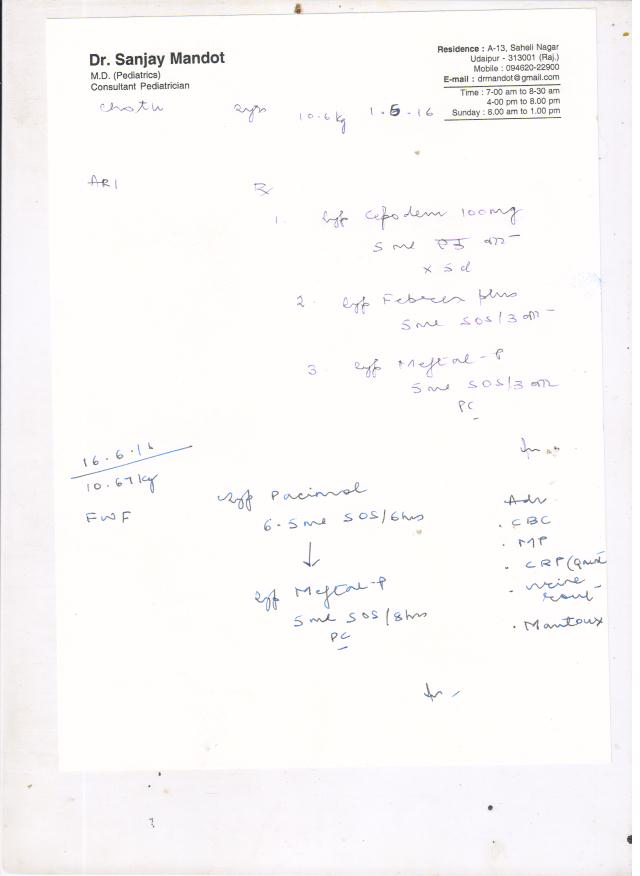 Dr. Sanjay Mandot
M.D. (Pediatrics)
Consultant Pediatrician
Residence : A-13, Saheli Nagar
Udaipur - 313001 (Raj.)
Mobile : 094620-22900
E-mail : drmandot@gmail.com
Time : 7-00 am to 8-30 am
4-00 pm to 8.00 pm
Sunday : 8.00 am to 1.00 pm
Chotu 2yrs 10.6 kg 1.5.16
ARI
Rx
1. Syp Cepodem 100mg
5 ml
x 5d
2. Syp Febrex plus
5ml SOS/3
3. Syp Meftal-P
5ml SOS/3
PC
16.6.16
10.67kg
FWF
Syp Pacimol
6.5ml SOS/6hrs
↓
Syp Meftal-P
5ml SOS/8hrs
PC
Adv
. CBC
. MP
. CRP (Quat
. Urine
. Mantoux